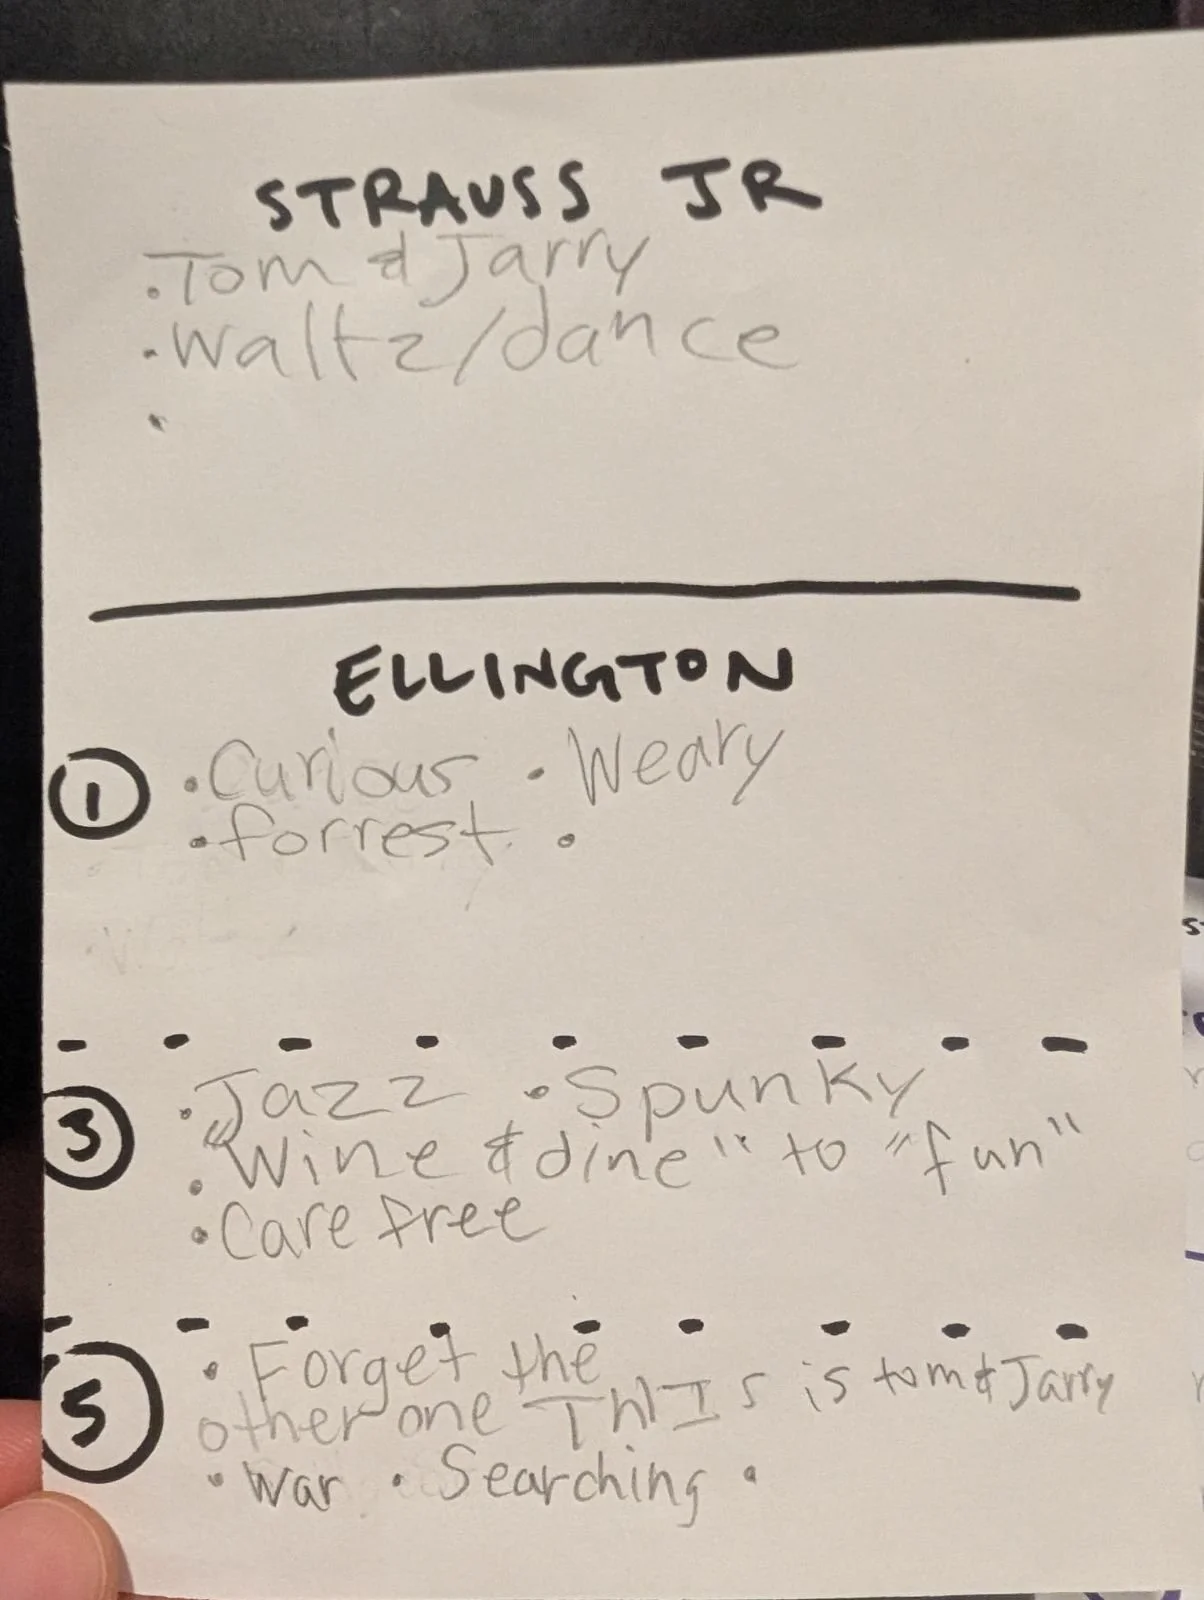 STRAUSS JR
• Tom & Jarry
• Waltz/dance
•
ELLINGTON
① • Curious • Weary
• forrest •
③ • Jazz • Spunky
• "Wine & dine" to "fun"
• Care free
⑤ • Forget the
other one ThIS is tom & Jarry
• War • Searching •